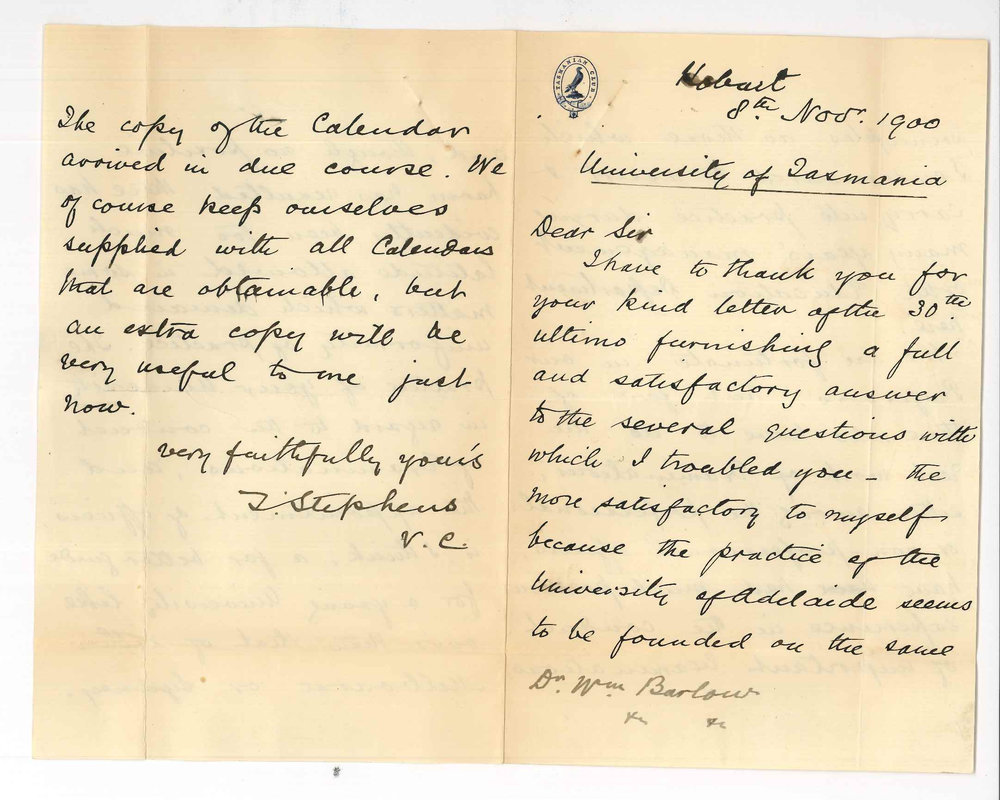 TASMANIAN CLUB
Hobart
8th Novr. 1900
University of Tasmania
Dear Sir
I have to thank you for
your kind letter of the 30th
ultimo furnishing a full
and satisfactory answer
to the several questions with
which I troubled you - the
more satisfactory to myself
because the practice of the
University of Adelaide seems
to be founded on the same
Dr. Wm Barlow
&c &c
The copy of the Calendar
arrived in due course. We
of course keep ourselves
supplied with all Calendars
that are obtainable, but
an extra copy will be
very useful to me just
now.
very faithfully yours
T Stephens
V.C.